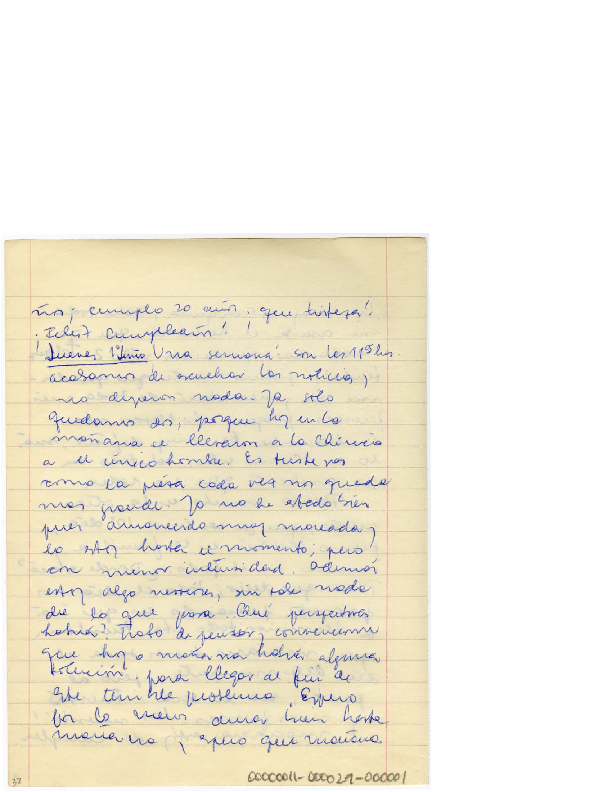 ños; cumplo 20 años. que tristeza!
¡Feliz cumpleaños!!
Jueves 1° Una semana! son las 11 hrs.
acabamos de escuchar las noticias,
no dijeron nada. Ya solo
quedamos dos, porque hoy en la
mañana se llevaron a la Clínica
a el único hombre. Es triste ver
como la pieza cada vez nos queda
mas grande. Yo no he estado bien
pues amanecido muy mareada y
lo estoy hasta el momento; pero
con menor intensidad. además
estoy algo nerviosa, sin sabe nada
de lo que pasa. Qué perspectivas
habrá? Trato de pensar y convencerme
que hoy o mañana habrá alguna
solución, para llegar al fin de
este terrible problema. Espero
por lo menos dormir bien hasta
mañana, espero que mañana
00000011-000029-000001